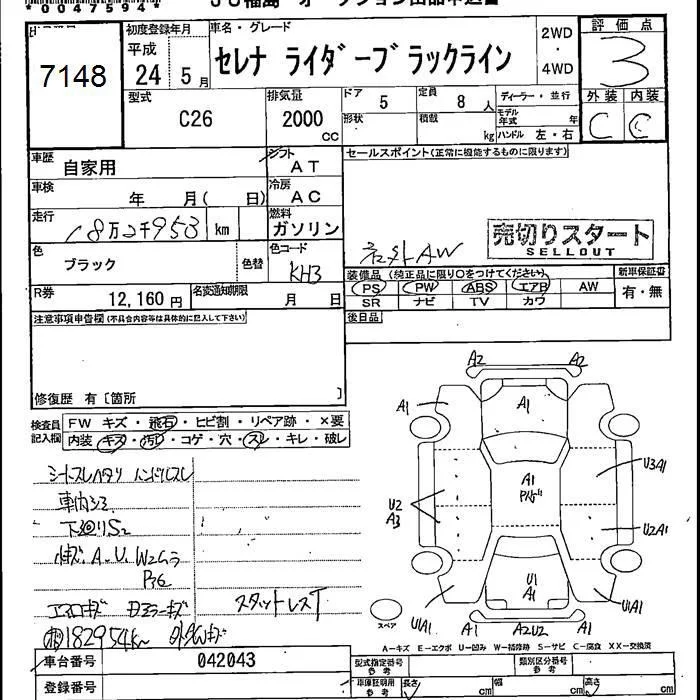 *00475944*
7148
初度登録年月
平成
24 5月
車名・グレード
セレナ ライダーブラックライン
2WD
・
4WD
評価点
3
外装 内装
C C
型式
C26
排気量
2000
cc
ドア
5
定員
8人
形状
積載
kg
ディーラー・並行
モデル年式
年
ハンドル 左・右
車歴
自家用
シフト
AT
セールスポイント(正常に機能するものに限ります)
車検
年 月( 日)
冷房
AC
走行
18万2千953 km
燃料
ガソリン
社外AW
売切りスタート
SELLOUT
色
ブラック
色替
色コード
KH3
装備品(純正品に限り○をつけてください)
新車保証書
PS PW ABS エアB AW
有・無
SR ナビ TV カワ
R券
12,160円
名変通知期限
月 日
後日品
注意事項申告欄(不具合内容等は具体的に記入して下さい)
修復歴 有〔箇所 〕
検査員記入欄
FW キズ・飛石・ヒビ割・リペア跡・×要
内装 キズ・汚れ・コゲ・穴・スレ・キレ・破レ
シートスレヘタリ ハンドルスレ
車内シミ
下廻りS2
A.U.W2ムラ
エアロキズ ドアミラーキズ
182954km
スタットレスT
A2 A2
A1
A1
A1
U2
A3
U3A1
U2A1
U1
A1
U1A1
U1A1
A1 A2U2 A1
スペア
A-キズ E-エクボ U-凹み W-補修跡 S-サビ C-腐食 XX-交換済
車台番号
042043
型式指定番号
参考
類別区分番号
参考
登録番号
車庫証明用
参考
長さ
cm
幅
cm
高さ
cm